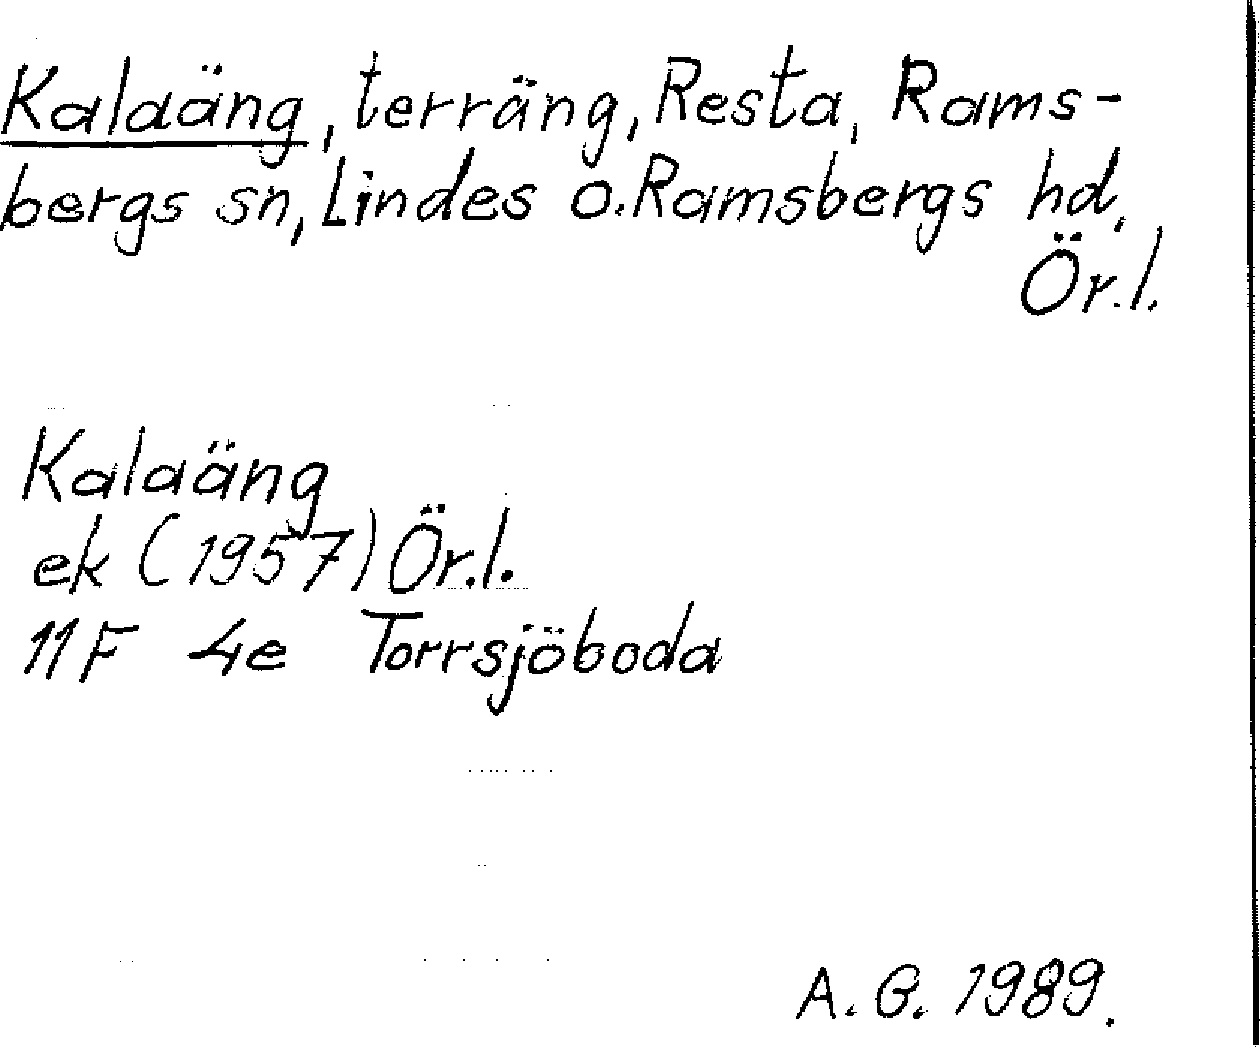 Kalaäng, terräng, Resta, Rams-
bergs sn, Lindes o. Ramsbergs hd,
Ör.l.
Kalaäng
ek (1957) Ör.l.
11F 4e Torrsjöboda
A. G. 1989.